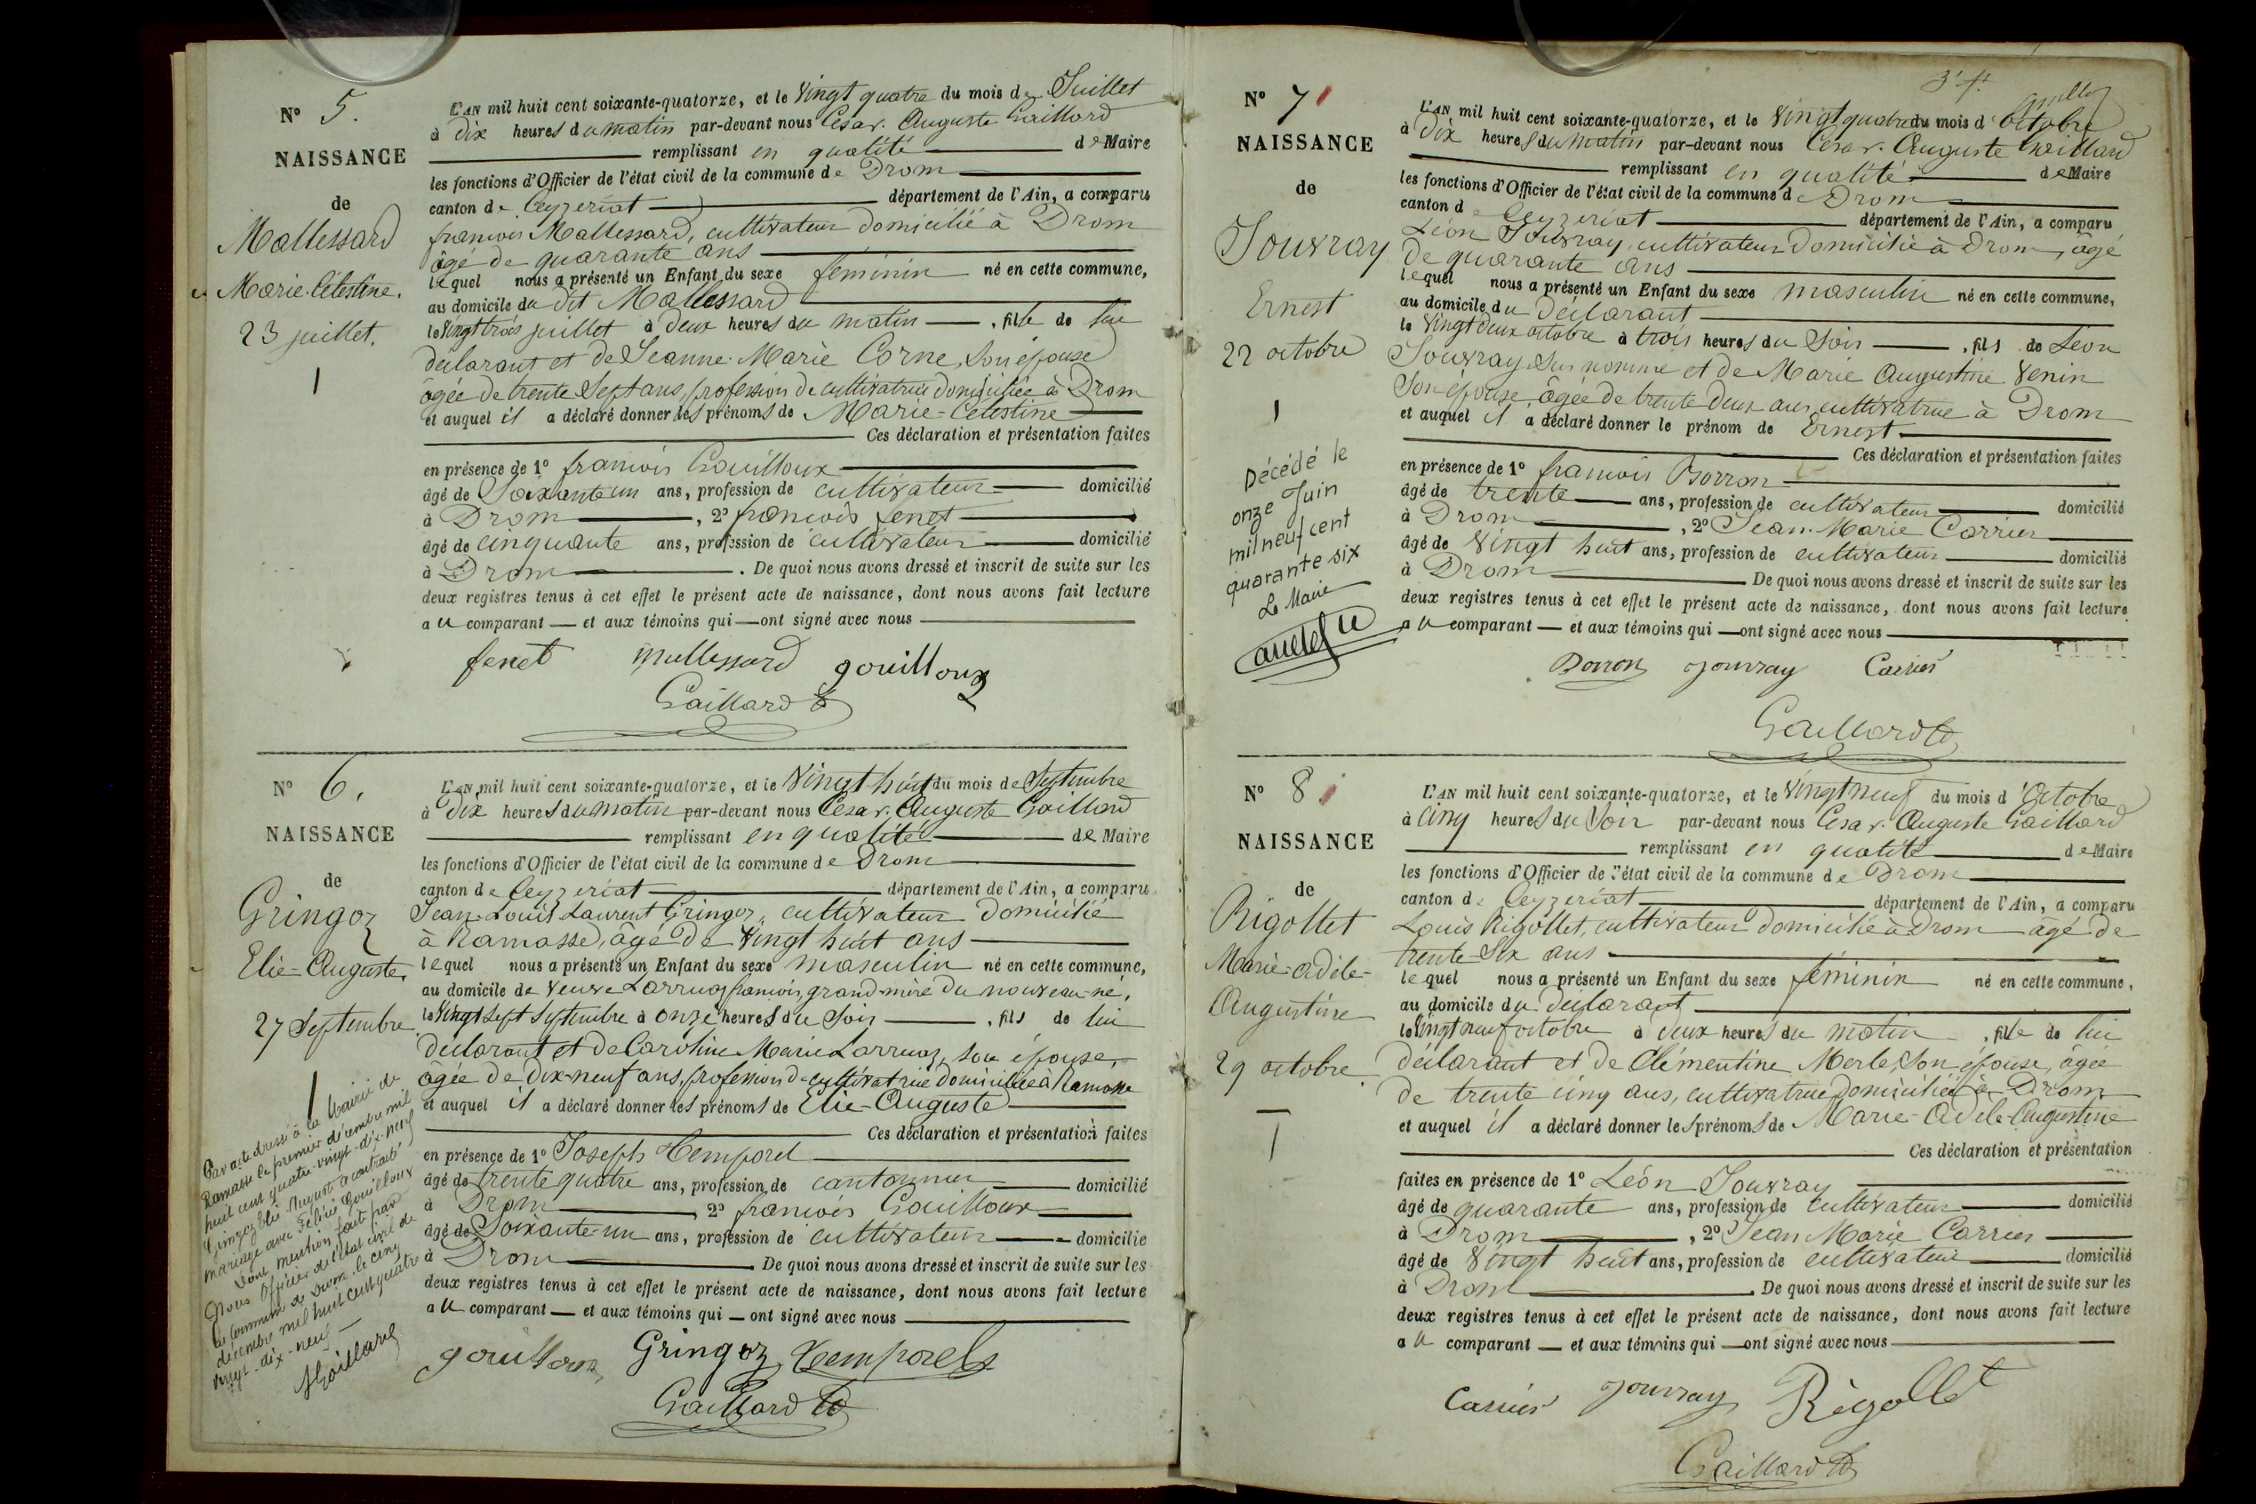 N° 5.
NAISSANCE
de
Mallessard
Marie Célestine.
23 juillet.
1
L'AN mil huit cent soixante-quatorze, et le Vingt quatre du mois de Juillet
à dix heures du matin par-devant nous César Auguste Gaillard
remplissant en qualité de Maire
les fonctions d'Officier de l'état civil de la commune de Drom
canton de Ceyzeriat département de l'Ain, a comparu
francois Mallessard, cultivateur domicilié à Drom
âgé de quarante ans
lequel nous a présenté un Enfant du sexe féminin né en cette commune,
au domicile du dit Mallessard
le Vingt trois juillet à deux heures du matin , fille de lui
déclarant et de Jeanne Marie Corne, Son épouse
âgée de trente Sept ans, profession de cultivatrice domiciliée à Drom
et auquel il a déclaré donner les prénoms de Marie-Célestine
Ces déclaration et présentation faites
en présence de 1° francois Gouilloux
âgé de Soixante un ans, profession de cultivateur domicilié
à Drom , 2° francois fenet
âgé de cinquante ans, profession de cultivateur domicilié
à Drom . De quoi nous avons dressé et inscrit de suite sur les
deux registres tenus à cet effet le présent acte de naissance, dont nous avons fait lecture
au comparant — et aux témoins qui — ont signé avec nous
fenet Mallessard gouilloux
Gaillard
N° 6.
NAISSANCE
de
Gringoz
Elie-Auguste.
27 Septembre
1
Par acte dressé à la Mairie de
Ramasse le premier décembre mil
huit cent quatre-vingt-dix-neuf
Gringoz Elie Auguste a contracté
mariage avec Gouilloux
Dont mention fait par
Nous Officier de l'état civil de
la commune de Drom le cinq
décembre mil huit cent quatre
vingt-dix-neuf —
Gaillard
L'AN mil huit cent soixante-quatorze, et le Vingt huit du mois de Septembre
à dix heures du matin par-devant nous César Auguste Gaillard
remplissant en qualité de Maire
les fonctions d'Officier de l'état civil de la commune de Drom
canton de Ceyzeriat département de l'Ain, a comparu
Jean-Louis Laurent Gringoz, cultivateur domicilié
à Ramasse, âgé de Vingt huit ans
lequel nous a présenté un Enfant du sexe masculin né en cette commune,
au domicile de veuve Larruaz francois, grand-mère du nouveau-né,
le Vingt Sept Septembre à onze heures du Soir , fils de lui
déclarant et de Caroline Marie Larruaz, son épouse,
âgée de dix-neuf ans, profession de cultivatrice domiciliée à Ramasse
et auquel il a déclaré donner les prénoms de Elie-Auguste
Ces déclaration et présentation faites
en présence de 1° Joseph Temporel
âgé de trente quatre ans, profession de cantonnier domicilié
à Drom 2° francois Gouilloux
âgé de Soixante-un ans, profession de cultivateur domicilié
à Drom De quoi nous avons dressé et inscrit de suite sur les
deux registres tenus à cet effet le présent acte de naissance, dont nous avons fait lecture
au comparant — et aux témoins qui — ont signé avec nous
gouilloux Gringoz Temporel
Gaillard
N° 7
NAISSANCE
de
Jouvray
Ernest
22 octobre
1
Décédé le
onze Juin
mil neuf cent
quarante six
Le Maire
L'AN mil huit cent soixante-quatorze, et le Vingt quatre du mois d'Octobre
à dix heures du matin par-devant nous César Auguste Gaillard
remplissant en qualité de Maire
les fonctions d'Officier de l'état civil de la commune de Drom
canton de Ceyzeriat département de l'Ain, a comparu
Léon Jouvray, cultivateur domicilié à Drom, âgé
de quarante ans
lequel nous a présenté un Enfant du sexe masculin né en cette commune,
au domicile du déclarant
le Vingt deux octobre à trois heures du Soir , fils de Léon
Jouvray, Sus nommé et de Marie Augustine Venin
Son épouse, âgée de trente deux ans cultivatrice à Drom
et auquel il a déclaré donner le prénom de Ernest
Ces déclaration et présentation faites
en présence de 1° francois Borron
âgé de trente ans, profession de cultivateur domicilié
à Drom , 2° Jean-Marie Carrier
âgé de Vingt huit ans, profession de cultivateur domicilié
à Drom De quoi nous avons dressé et inscrit de suite sur les
deux registres tenus à cet effet le présent acte de naissance, dont nous avons fait lecture
au comparant — et aux témoins qui — ont signé avec nous
Borron Jouvray Carrier
Gaillard
N° 8
NAISSANCE
de
Rigollet
Marie-Adèle-
Augustine
29 octobre.
1
L'AN mil huit cent soixante-quatorze, et le Vingt neuf du mois d'Octobre
à cinq heures du Soir par-devant nous César Auguste Gaillard
remplissant en qualité de Maire
les fonctions d'Officier de l'état civil de la commune de Drom
canton de Ceyzeriat département de l'Ain, a comparu
Louis Rigollet, cultivateur domicilié à Drom âgé de
trente Six ans
lequel nous a présenté un Enfant du sexe féminin né en cette commune,
au domicile du déclarant
le Vingt neuf octobre à deux heures du matin , fille de lui
déclarant et de Clémentine Merle, Son épouse, âgée
de trente cinq ans, cultivatrice domiciliée à Drom
et auquel il a déclaré donner les prénoms de Marie-Adèle-Augustine
Ces déclaration et présentation
faites en présence de 1° Léon Jouvray
âgé de quarante ans, profession de cultivateur domicilié
à Drom , 2° Jean Marie Carrier
âgé de Vingt huit ans, profession de cultivateur domicilié
à Drom . De quoi nous avons dressé et inscrit de suite sur les
deux registres tenus à cet effet le présent acte de naissance, dont nous avons fait lecture
au comparant — et aux témoins qui — ont signé avec nous
Carrier Jouvray Rigollet
Gaillard